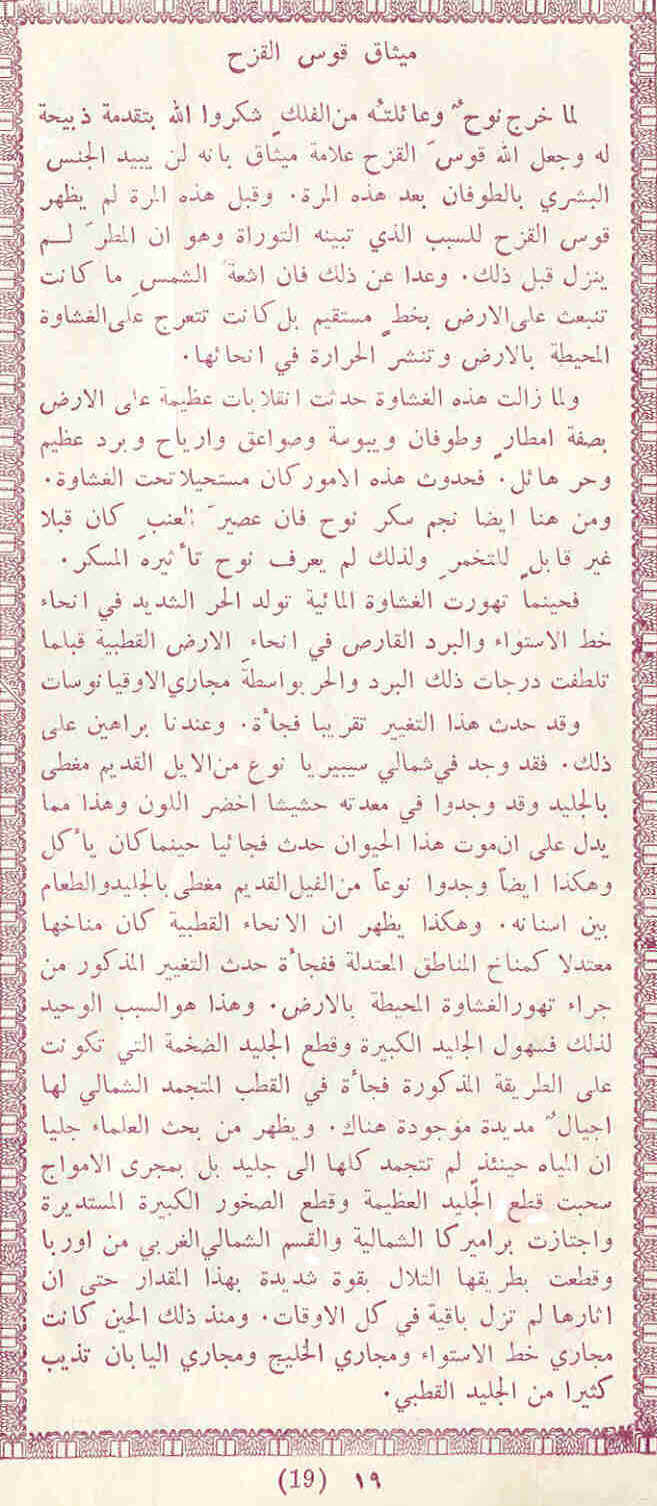 ميثاق قوس القزح
لما خرج نوحٌ وعائلتُه من الفلكِ شكروا الله بتقدمة ذبيحة
له وجعل الله قوسَ القزح علامة ميثاق بانه لن يبيد الجنس
البشري بالطوفان بعد هذه المرة. وقبل هذه المرة لم يظهر
قوس القزح للسبب الذي تبينه التوراة وهو ان المطرَ لم
ينزل قبل ذلك. وعدا عن ذلك فان اشعةَ الشمسِ ما كانت
تنبعث على الارض بخطٍ مستقيم بل كانت تتعرج على الغشاوة
المحيطة بالارض وتنشر الحرارة في انحائها.
ولما زالت هذه الغشاوة حدثت انقلابات عظيمة على الارض
بصفة امطارٍ وطوفان ويبوسة وصواعق وارياح وبرد عظيم
وحر هائل. فحدوث هذه الامور كان مستحيلا تحت الغشاوة.
ومن هنا ايضا نجم سكر نوح فان عصيرَ العنبِ كان قبلا
غير قابلٍ للتخمرِ ولذلك لم يعرف نوح تأثيره المسكر.
فحينما تهورت الغشاوة المائية تولد الحر الشديد في انحاء
خط الاستواء والبرد القارص في انحاءِ الارض القطبية قبلما
تلطفت درجات ذلك البرد والحر بواسطة مجاري الاوقيانوسات
وقد حدث هذا التغيير تقريبا فجأة. وعندنا براهين على
ذلك. فقد وجد في شمالي سيبيريا نوع من الايل القديم مغطى
بالجليد وقد وجدوا في معدته حشيشا اخضر اللون وهذا مما
يدل على ان موت هذا الحيوان حدث فجائيا حينما كان يأكل
وهكذا ايضاً وجدوا نوعاً من الفيل القديم مغطى بالجليد والطعام
بين اسنانه. وهكذا يظهر ان الانحاء القطبية كان مناخها
معتدلا كمناخ المناطق المعتدلة ففجأة حدث التغيير المذكور من
جراء تهور الغشاوة المحيطة بالارض. وهذا هو السبب الوحيد
لذلك فسهول الجليد الكبيرة وقطع الجليد الضخمة التي تكونت
على الطريقة المذكورة فجأة في القطب المتجمد الشمالي لها
اجيالٌ مديدة موجودة هناك. ويظهر من بحث العلماء جليا
ان المياه حينئذٍ لم تتجمد كلها الى جليد بل بمجرى الامواج
سحبت قطع الجليد العظيمة وقطع الصخور الكبيرة المستديرة
واجتازت براميركا الشمالية والقسم الشمالي الغربي من اوربا
وقطعت بطريقها التلال بقوة شديدة بهذا المقدار حتى ان
اثارها لم تزل باقية في كل الاوقات. ومنذ ذلك الحين كانت
مجاري خط الاستواء ومجاري الخليج ومجاري اليابان تذيب
كثيرا من الجليد القطبي.
١٩ (19)